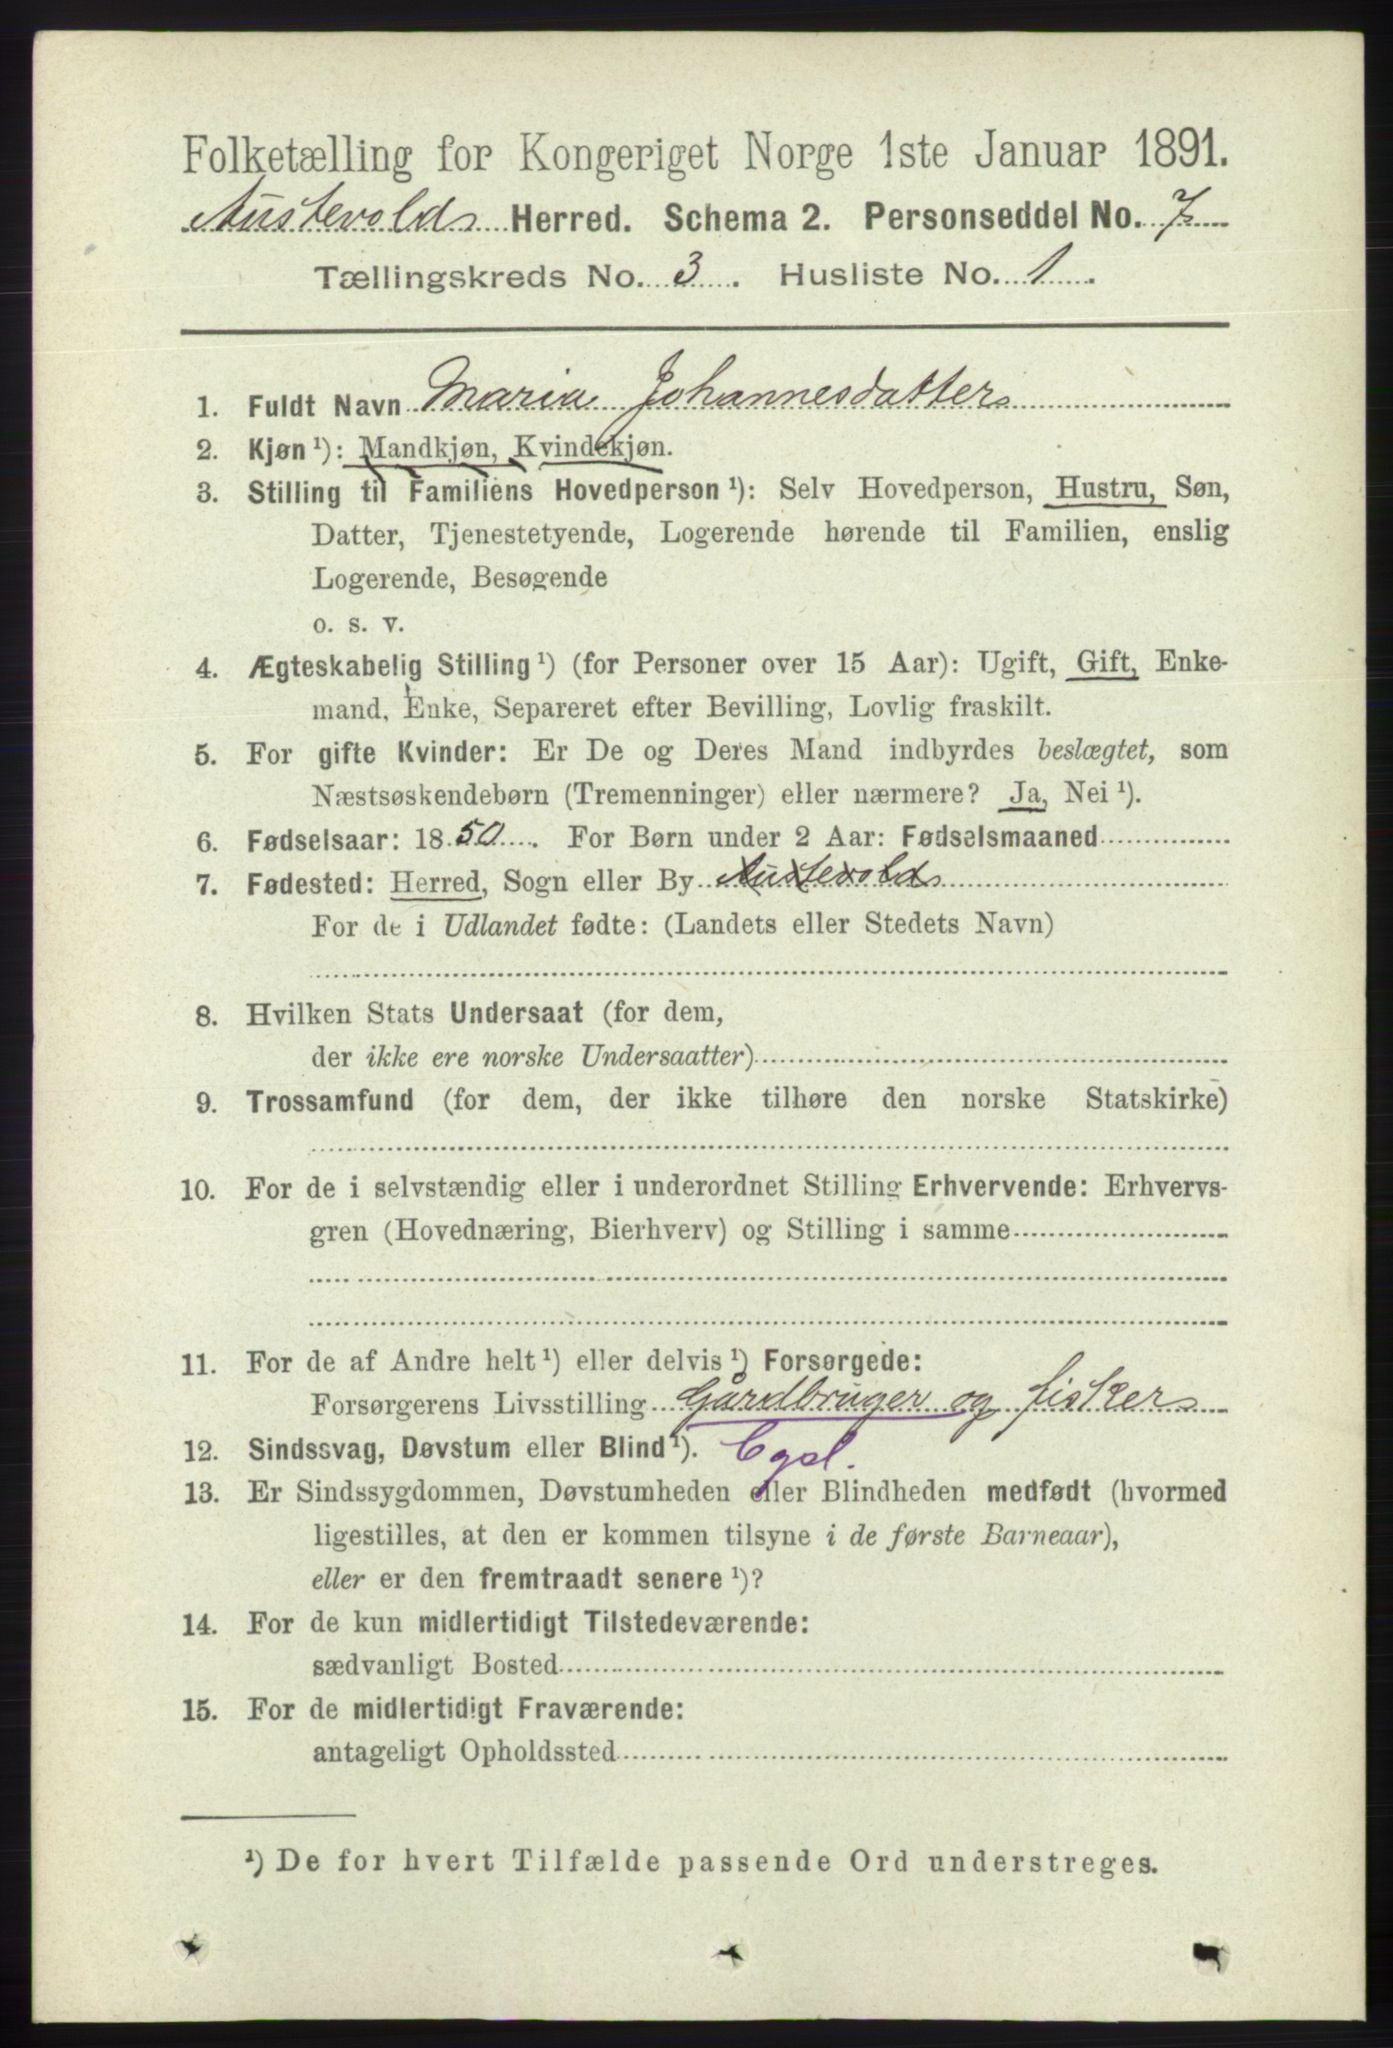 Folketælling for Kongeriget Norge 1ste Januar 1891.
Austevolds Herred. Schema 2. Personseddel No. 7
Tællingskreds No. 3. Husliste No. 1.
1. Fuldt Navn Maria Johannesdatter
2. Kjøn ¹): Mandkjøn, Kvindekjøn.
3. Stilling til Familiens Hovedperson ¹): Selv Hovedperson, Hustru, Søn,
Datter, Tjenestetyende, Logerende hørende til Familien, enslig
Logerende, Besøgende
o. s. v.
4. Ægteskabelig Stilling ¹) (for Personer over 15 Aar): Ugift, Gift, Enke-
mand, Enke, Separeret efter Bevilling, Lovlig fraskilt.
5. For gifte Kvinder: Er De og Deres Mand indbyrdes beslægtet, som
Næstsøskendebørn (Tremenninger) eller nærmere? Ja, Nei ¹).
6. Fødselsaar: 1850. For Børn under 2 Aar: Fødselsmaaned
7. Fødested: Herred, Sogn eller By Austevold
For de i Udlandet fødte: (Landets eller Stedets Navn)
8. Hvilken Stats Undersaat (for dem,
der ikke ere norske Undersaatter)
9. Trossamfund (for dem, der ikke tilhøre den norske Statskirke)
10. For de i selvstændig eller i underordnet Stilling Erhvervende: Erhvervs-
gren (Hovednæring, Bierhverv) og Stilling i samme
11. For de af Andre helt ¹) eller delvis ¹) Forsørgede:
Forsørgerens Livsstilling Gårdbruger og fisker
12. Sindssvag, Døvstum eller Blind ¹).
13. Er Sindssygdommen, Døvstumheden eller Blindheden medfødt (hvormed
ligestilles, at den er kommen tilsyne i de første Barneaar),
eller er den fremtraadt senere ¹)?
14. For de kun midlertidigt Tilstedeværende:
sædvanligt Bosted
15. For de midlertidigt Fraværende:
antageligt Opholdssted
¹) De for hvert Tilfælde passende Ord understreges.